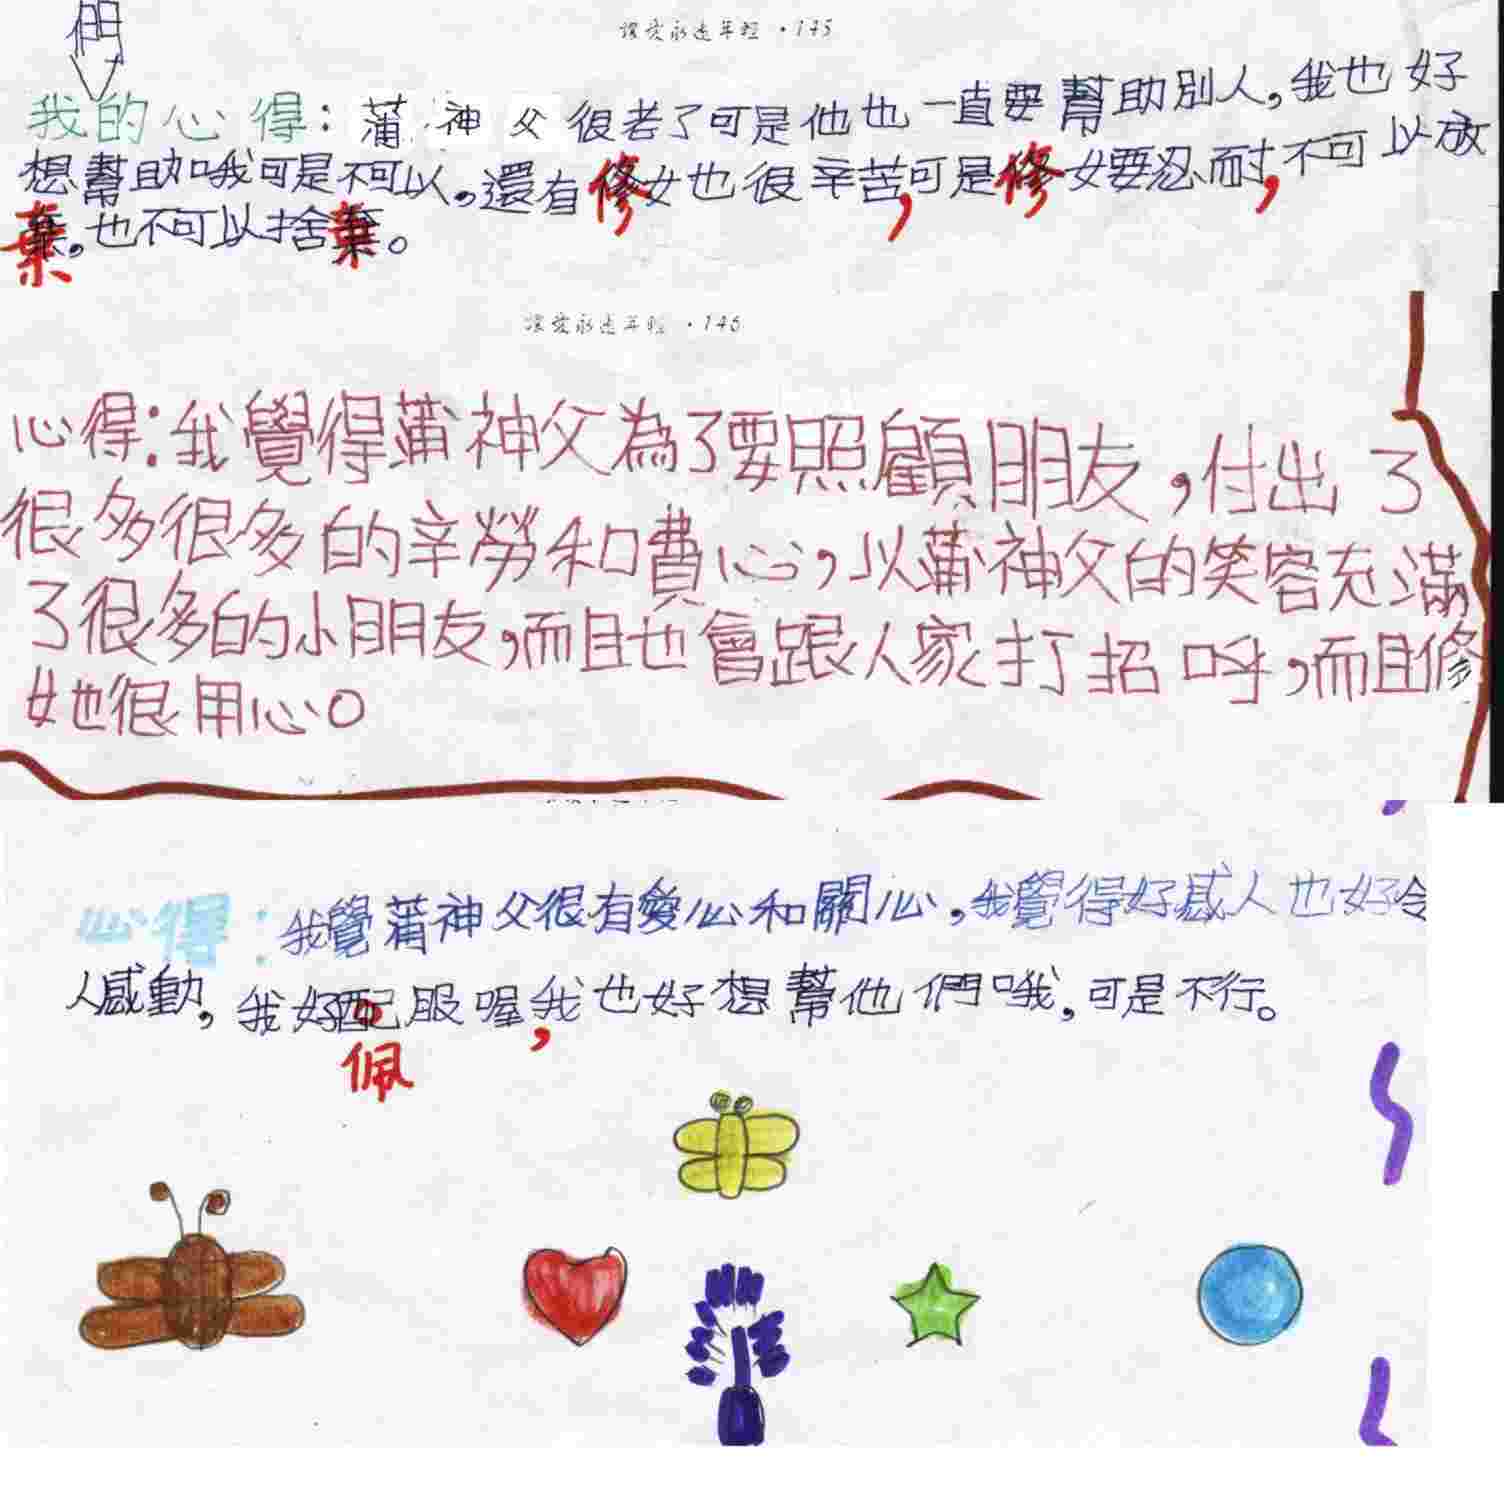 讓愛永遠年輕 · 145
們
我的心得：蒲神父很老了可是他也一直要幫助別人，我也好
想幫助哦可是不可以，還有修女也很辛苦，可是修女要忍耐，不可以放
棄，也不可以捨棄。
讓愛永遠年輕 · 145
心得：我覺得蒲神父為了要照顧朋友，付出了
很多很多的辛勞和費心，以蒲神父的笑容充滿
了很多的小朋友，而且也會跟人家打招呼，而且修
女也很用心。
心得：我覺蒲神父很有愛心和關心，我覺得好感人也好令
人感動，我好配服喔，我也好想幫他們哦，可是不行。
佩